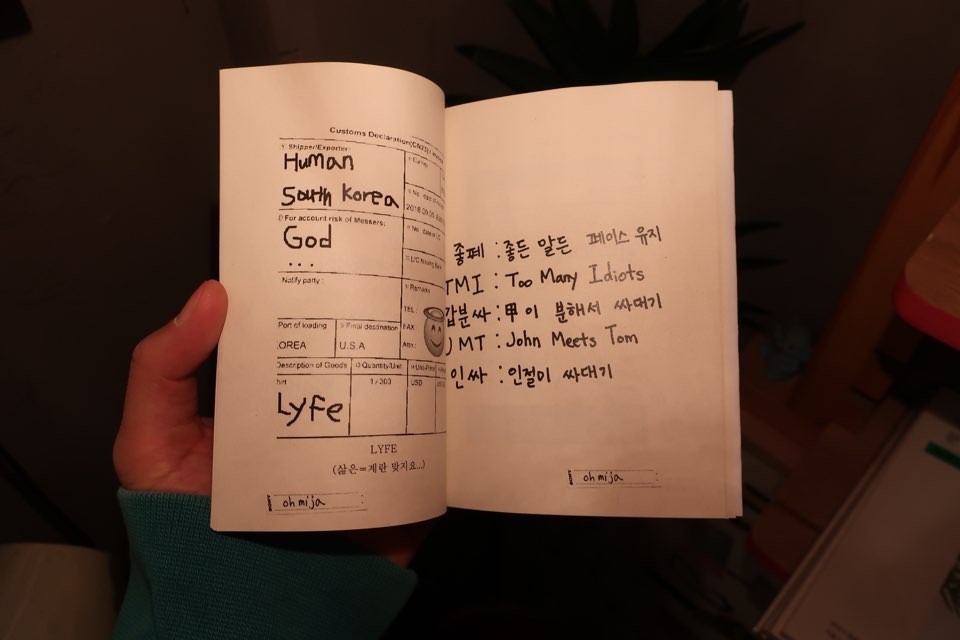 Customs Declaration(CN23) /
Shipper/Exporter:
Human
South Korea
For account risk of Messers:
God
...
Notify party:
Remarks
TEL:
FAX
Port of loading
Final destination
OREA
U.S.A
Description of Goods
Quantity/Unit
1 / 200
USD
Lyfe
LYFE
(삶은=계란 맞지요...)
oh mija
좋페 : 좋든 말든 페이스 유지
TMI : Too Many Idiots
갑분싸 : 甲이 분해서 싸대기
JMT : John Meets Tom
인싸 : 인절미 싸대기
oh mija